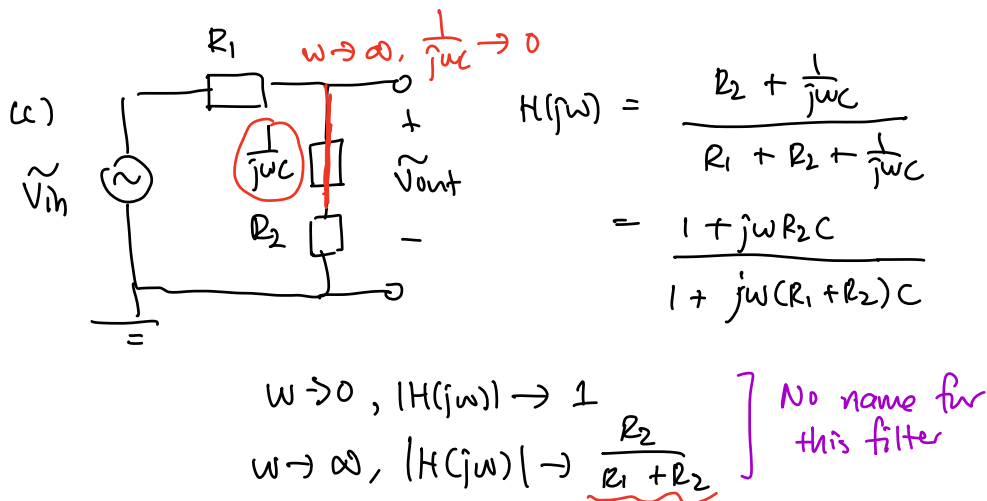 R₁
ω→∞, 1/jωC → 0
(c)
Ṽin
~
1/jωC
R₂
+
Ṽout
−
H(jω) = (R₂ + 1/jωC) / (R₁ + R₂ + 1/jωC)
= (1 + jωR₂C) / (1 + jω(R₁+R₂)C)
ω→0, |H(jω)| → 1
ω→∞, |H(jω)| → R₂ / (R₁ + R₂)
No name for
this filter